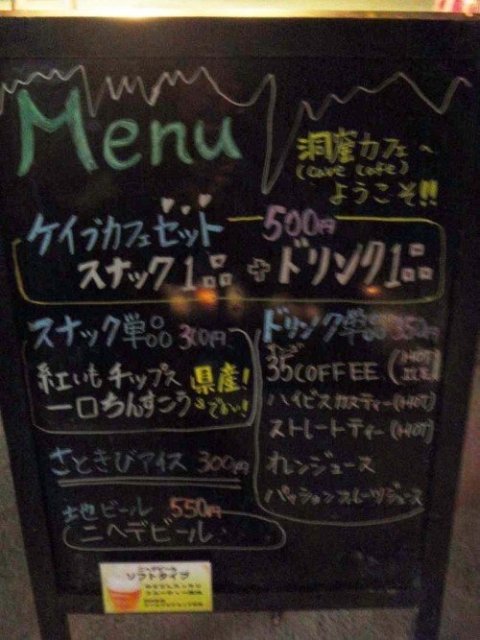 Menu
洞窟カフェへ
(cave cafe)
ようこそ!!
ケイブカフェセット 500円
スナック1品+ドリンク1品
スナック単品 300円
紅いもチップス 県産!
一口ちんすこう
さとうきびアイス 300円
地ビール 550円
ニヘデビール
ドリンク単品 350円
35COFFEE (HOT ICE)
ハイビスカスティー(HOT)
ストレートティー(HOT)
オレンジジュース
パッションフルーツジュース
ニヘデビール
ソフトタイプ